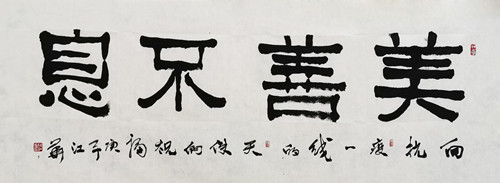 美善不息
向抗疫一线的天使们祝福庚子江